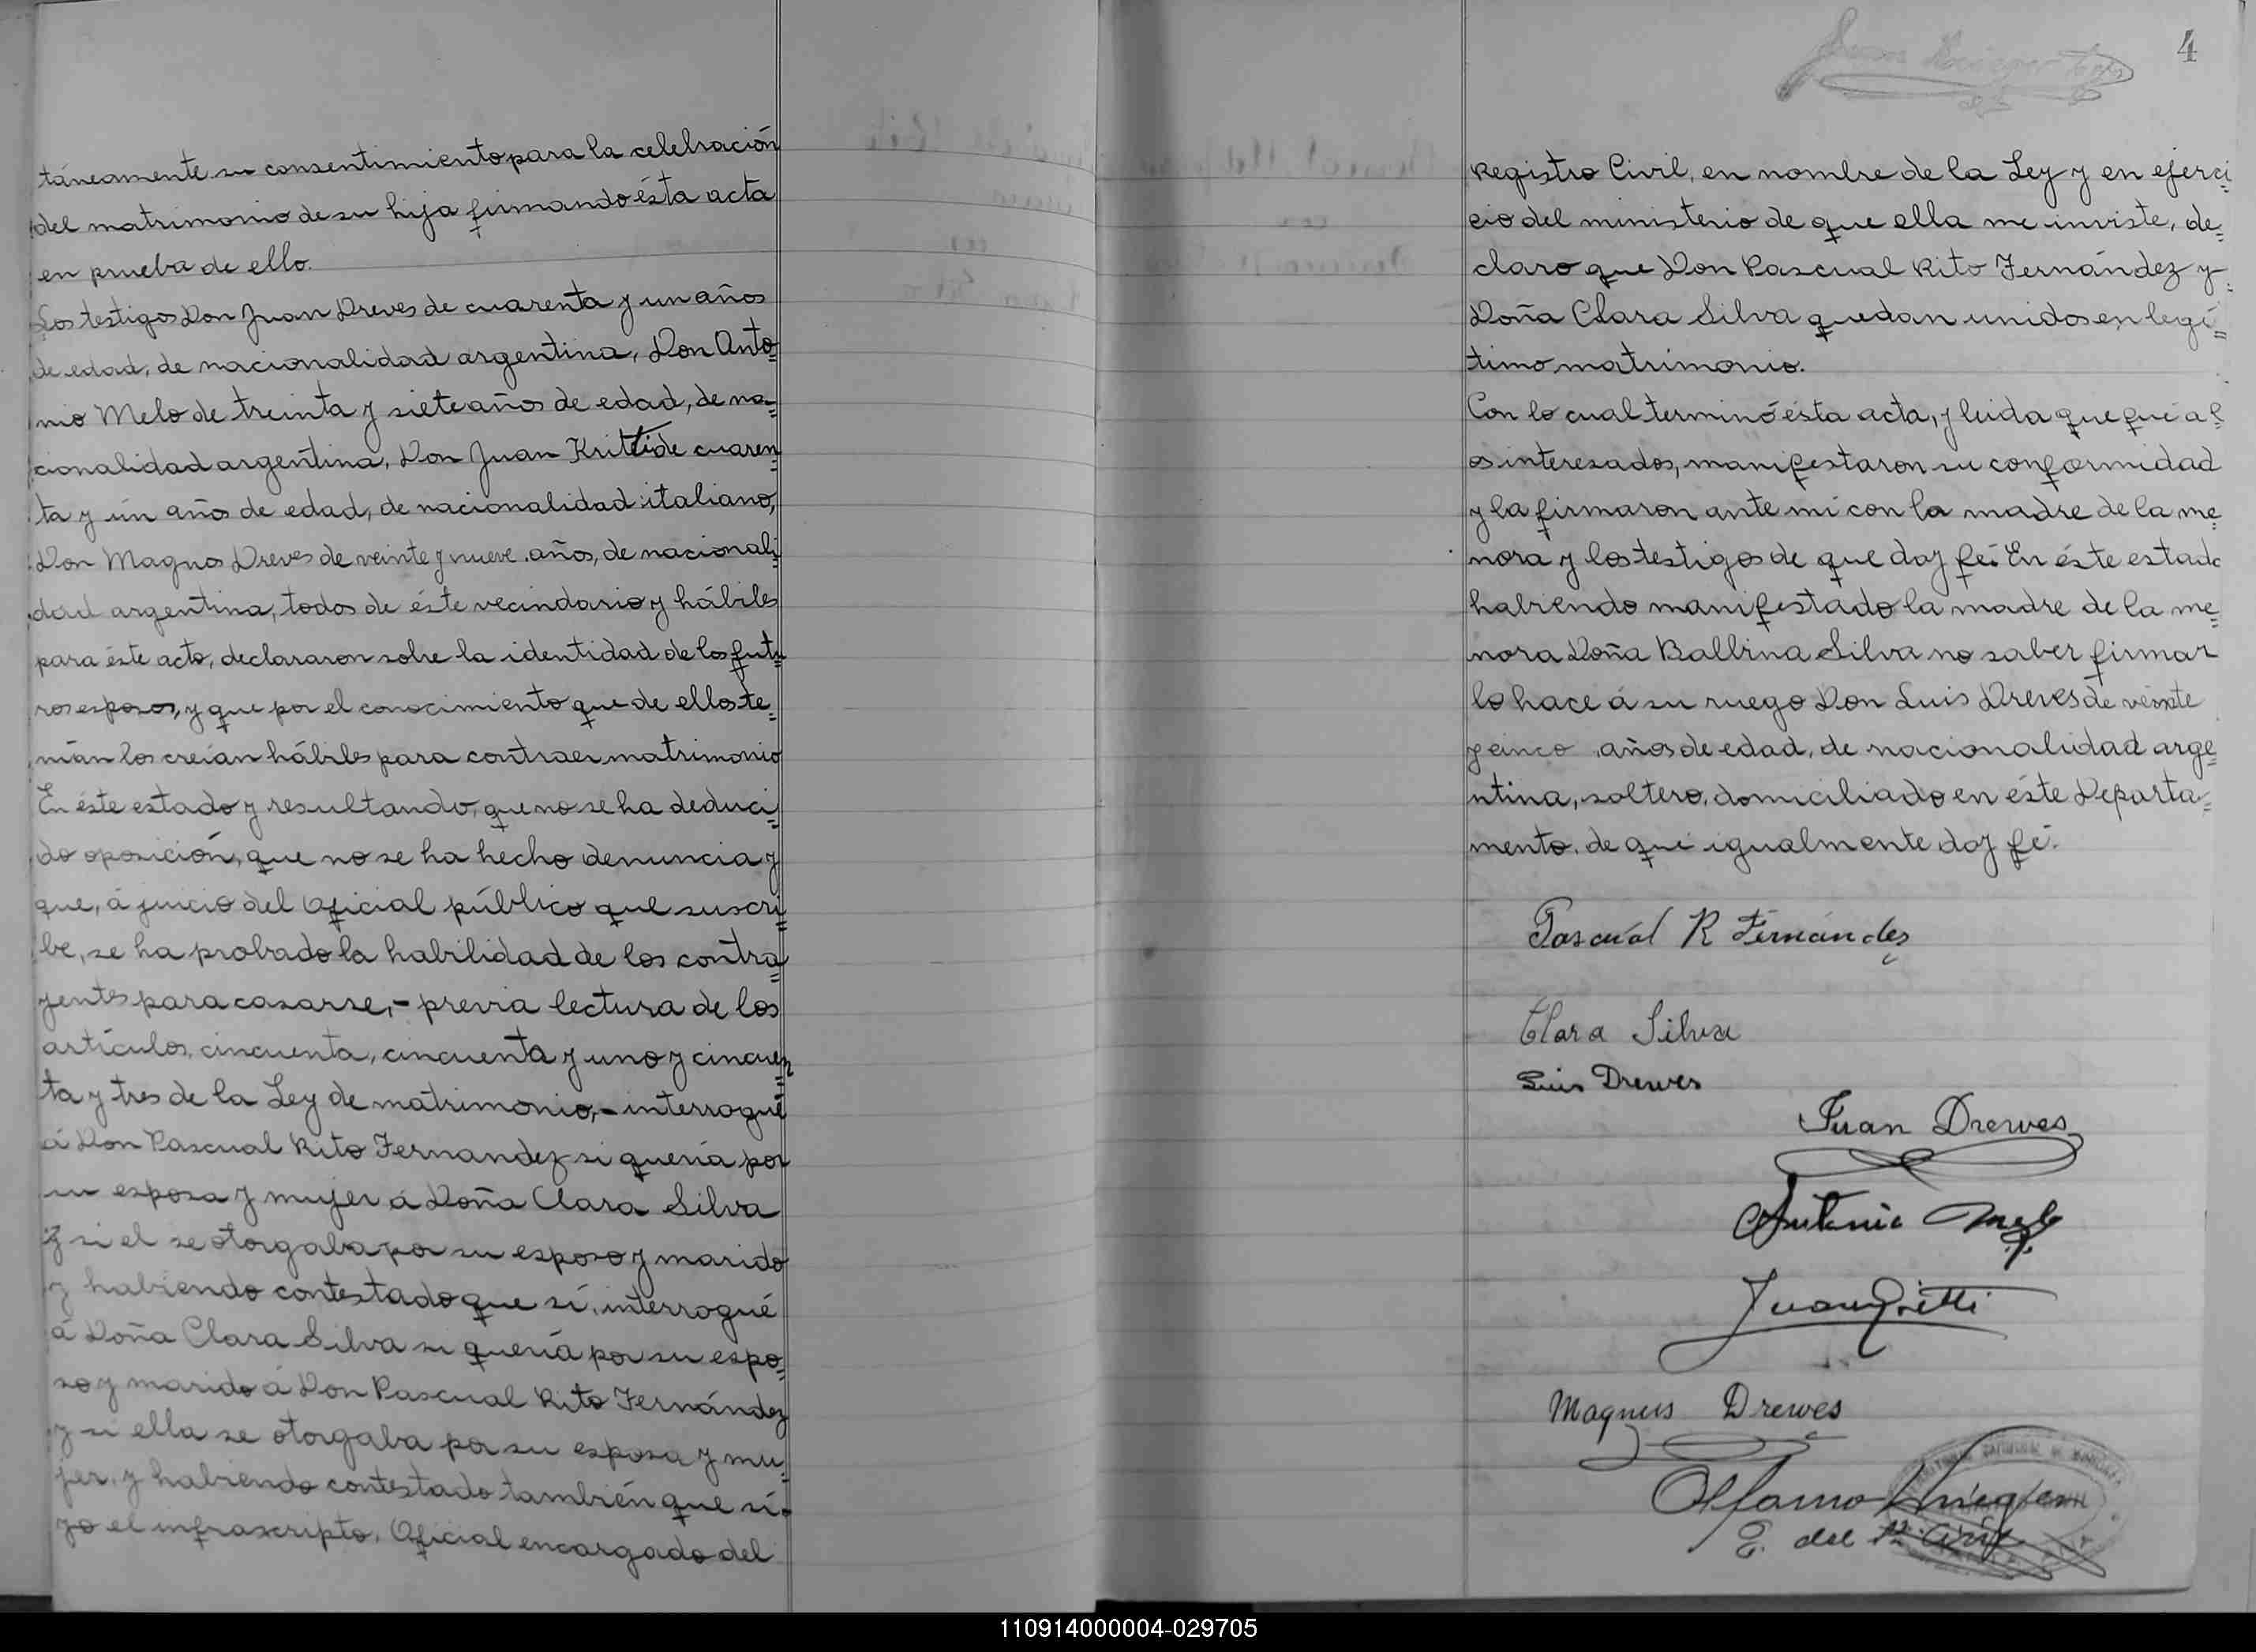 táneamente su consentimiento para la celebración
del matrimonio de su hija firmando ésta acta
en prueba de ello.
Los testigos Don Juan Dreves de cuarenta y un años
de edad, de nacionalidad argentina, Don Anto=
nio Melo de treinta y siete años de edad, de na=
cionalidad argentina, Don Juan Kritti de cuaren=
ta y ún años de edad, de nacionalidad italiano,
Don Magnos Dreves de veinte y nueve años, de nacionali=
dad argentina, todos de éste vecindario y hábiles
para éste acto, declararon sobre la identidad de los futu=
ros esposos, y que por el conocimiento que de ellos te=
nían los creían hábiles para contraer matrimonio
En éste estado y resultando, que no se ha deduci=
do oposición, que no se ha hecho denuncia y
que, á juicio del Oficial público que suscri=
be, se ha probado la habilidad de los contra=
yentes para casarse,- previa lectura de los
artículos, cincuenta, cincuenta y uno y cincuen=
ta y tres de la Ley de matrimonio,- interrogué
á Don Pascual Rito Fernandez si quería por
su esposa y mujer á Doña Clara Silva
y si el se otorgaba por su esposo y marido
y habiendo contestado que sí, interrogué
á Doña Clara Silva si quería por su espo=
so y marido á Don Pascual Rito Fernández
y si ella se otorgaba por su esposa y mu=
jer, y habiendo contestado también que sí-
yo el infrascripto, Oficial encargado del
4
Registro Civil, en nombre de la Ley y en ejerci=
cio del ministerio de que ella me inviste, de=
claro que Don Pascual Rito Fernández y
Doña Clara Silva quedan unidos en legí=
timo matrimonio.
Con lo cual terminó ésta acta, y leida que fué a l=
os interesados, manifestaron su conformidad
y la firmaron ante mi con la madre de la me=
nora y los testigos de que doy fé. En éste estado
habiendo manifestado la madre de la me=
nora Doña Balbina Silva no saber firmar
lo hace á su ruego Don Luis Dreves de veinte
y cinco años de edad, de nacionalidad arge=
ntina, soltero, domiciliado en éste Departa=
mento, de que igualmente doy fé.
Pascual R Fernández
Clara Silva
Luis Drewes
Juan Drewes
Antonio Melo
Juan Gritti
Magnus Drewes
E. del
110914000004-029705